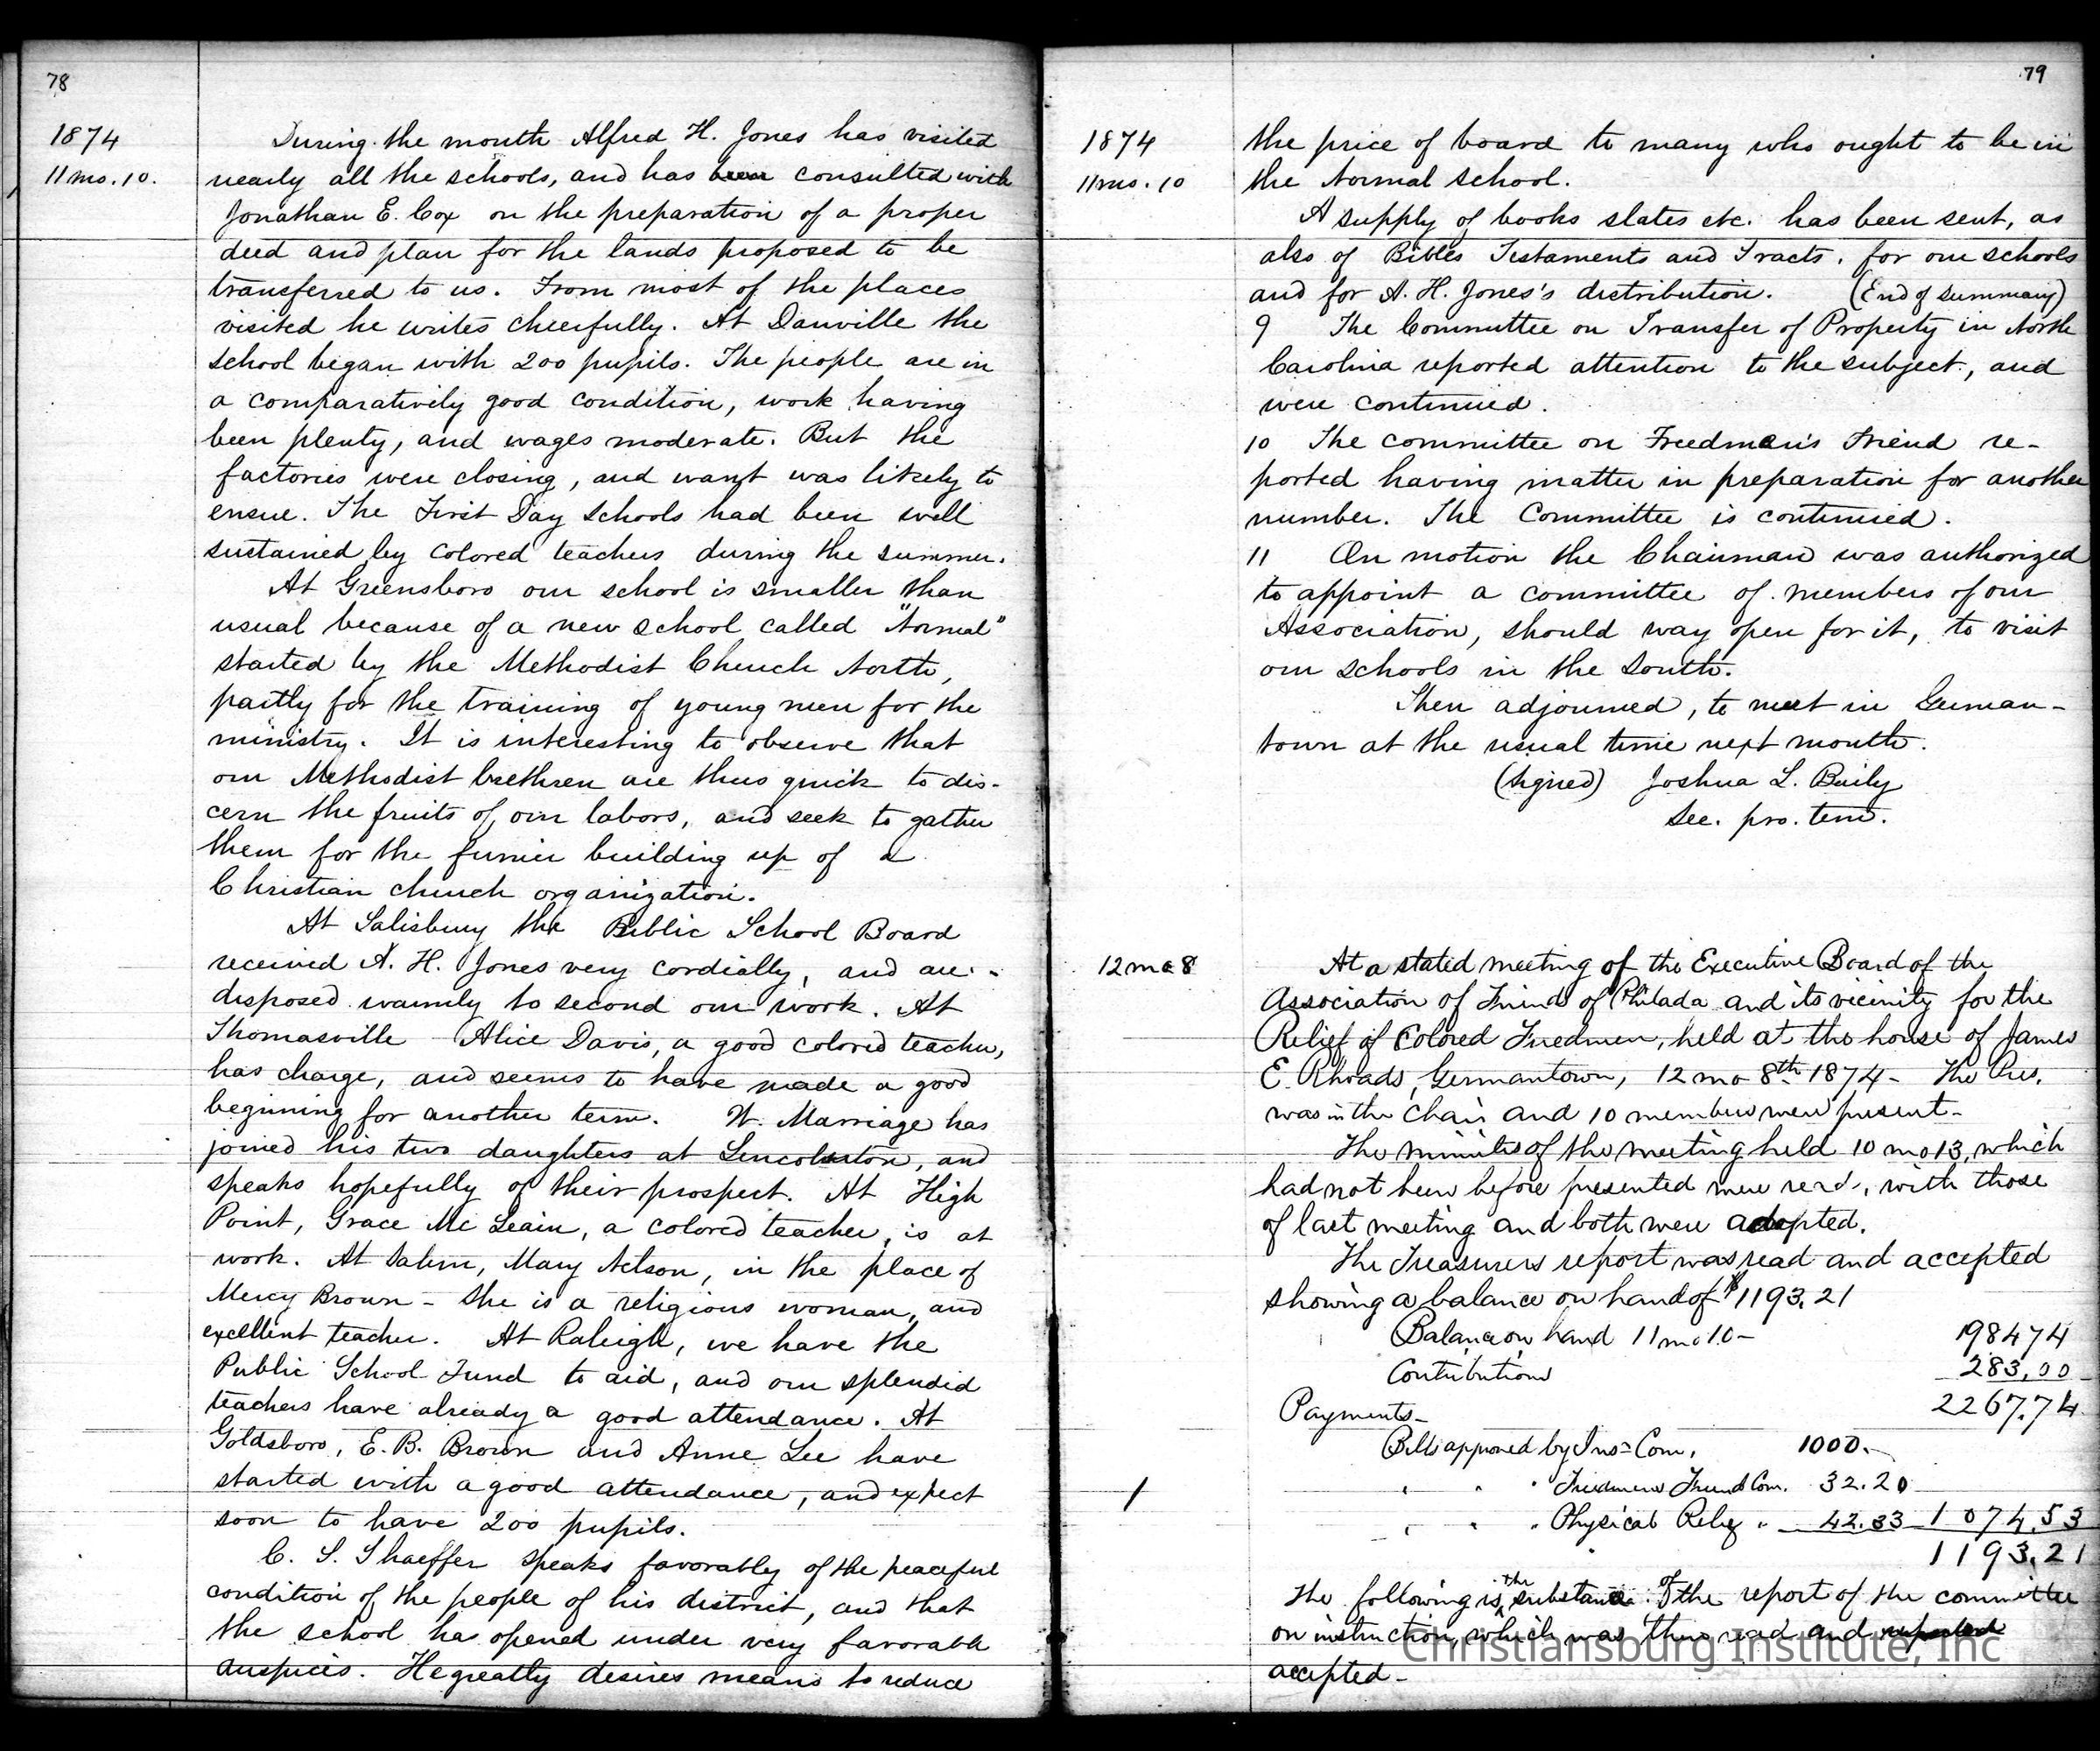 78
1874
11 mo. 10.
During the month Alfred H. Jones has visited
nearly all the schools, and has been consulted with
Jonathan E. Cox on the preparation of a proper
deed and plan for the lands proposed to be
transferred to us. From most of the places
visited he writes cheerfully. At Danville the
school began with 200 pupils. The people are in
a comparatively good condition, work having
been plenty, and wages moderate. But the
factories were closing, and want was likely to
ensue. The First Day Schools had been well
sustained by colored teachers during the summer.
At Greensboro our school is smaller than
usual because of a new school called "Normal"
started by the Methodist Church North,
partly for the training of young men for the
ministry. It is interesting to observe that
our Methodist brethren are thus quick to dis-
cern the fruits of our labors, and seek to gather
them for the further building up of a
Christian church organization.
At Salisbury the Public School Board
received A. H. Jones very cordially, and are
disposed warmly to second our work. At
Thomasville Alice Davis, a good colored teacher,
has charge, and seems to have made a good
beginning for another term. W. Marriage has
joined his two daughters at Lincolnton, and
speaks hopefully of their prospect. At High
Point, Grace Mc Leain, a colored teacher, is at
work. At Salem, Mary Nelson, in the place of
Mercy Brown - she is a religious woman, and
excellent teacher. At Raleigh, we have the
Public School Fund to aid, and our splendid
teachers have already a good attendance. At
Goldsboro, E. B. Brown and Anne Lee have
started with a good attendance, and expect
soon to have 200 pupils.
C. S. Shaeffer speaks favorably of the peaceful
condition of the people of his district, and that
the school has opened under very favorable
auspices. He greatly desires means to reduce
79
1874
11 mo. 10
the price of board to many who ought to be in
the Normal School.
A supply of books slates etc. has been sent, as
also of Bibles Testaments and Tracts, for our schools
and for A. H. Jones's distribution. (End of summary)
9 The Committee on Transfer of Property in North
Carolina reported attention to the subject, and
were continued.
10 The committee on Freedmen's Friend re-
ported having matter in preparation for another
number. The Committee is continued.
11 On motion the Chairman was authorized
to appoint a committee of members of our
Association, should way open for it, to visit
our schools in the South.
Then adjourned, to meet in German-
town at the usual time next month.
(Signed) Joshua L. Baily
Sec. pro. tem.
12 mo 8
At a stated meeting of the Executive Board of the
Association of Friends of Philada and its vicinity for the
Relief of Colored Freedmen, held at the house of James
E. Rhoads, Germantown, 12 mo 8th 1874 - The Pres.
was in the chair and 10 members were present -
The minutes of the meeting held 10 mo 13, which
had not been before presented were read, with those
of last meeting and both were adopted.
The Treasurers report was read and accepted
showing a balance on hand of $1193.21
Balance on hand 11 mo 10 - 198474
Contributions 283.00
2267.74
Payments -
Bills approved by Ins= Com. 1000.-
" " " Freedmens Friend Com. 32.20
" " " Physical Relief " 42.33 1074.53
1193.21
The following is the substance of the report of the committee
on instruction, which was then read and
accepted -
Christiansburg Institute, Inc